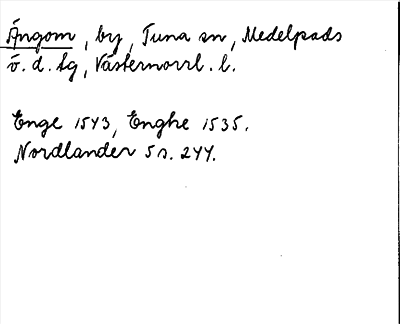 Ängom, by, Tuna sn, Medelpads
v. d. tg, Västernorrl. l.
Enge 1543, Enghe 1535.
Nordlander 5 s. 244.